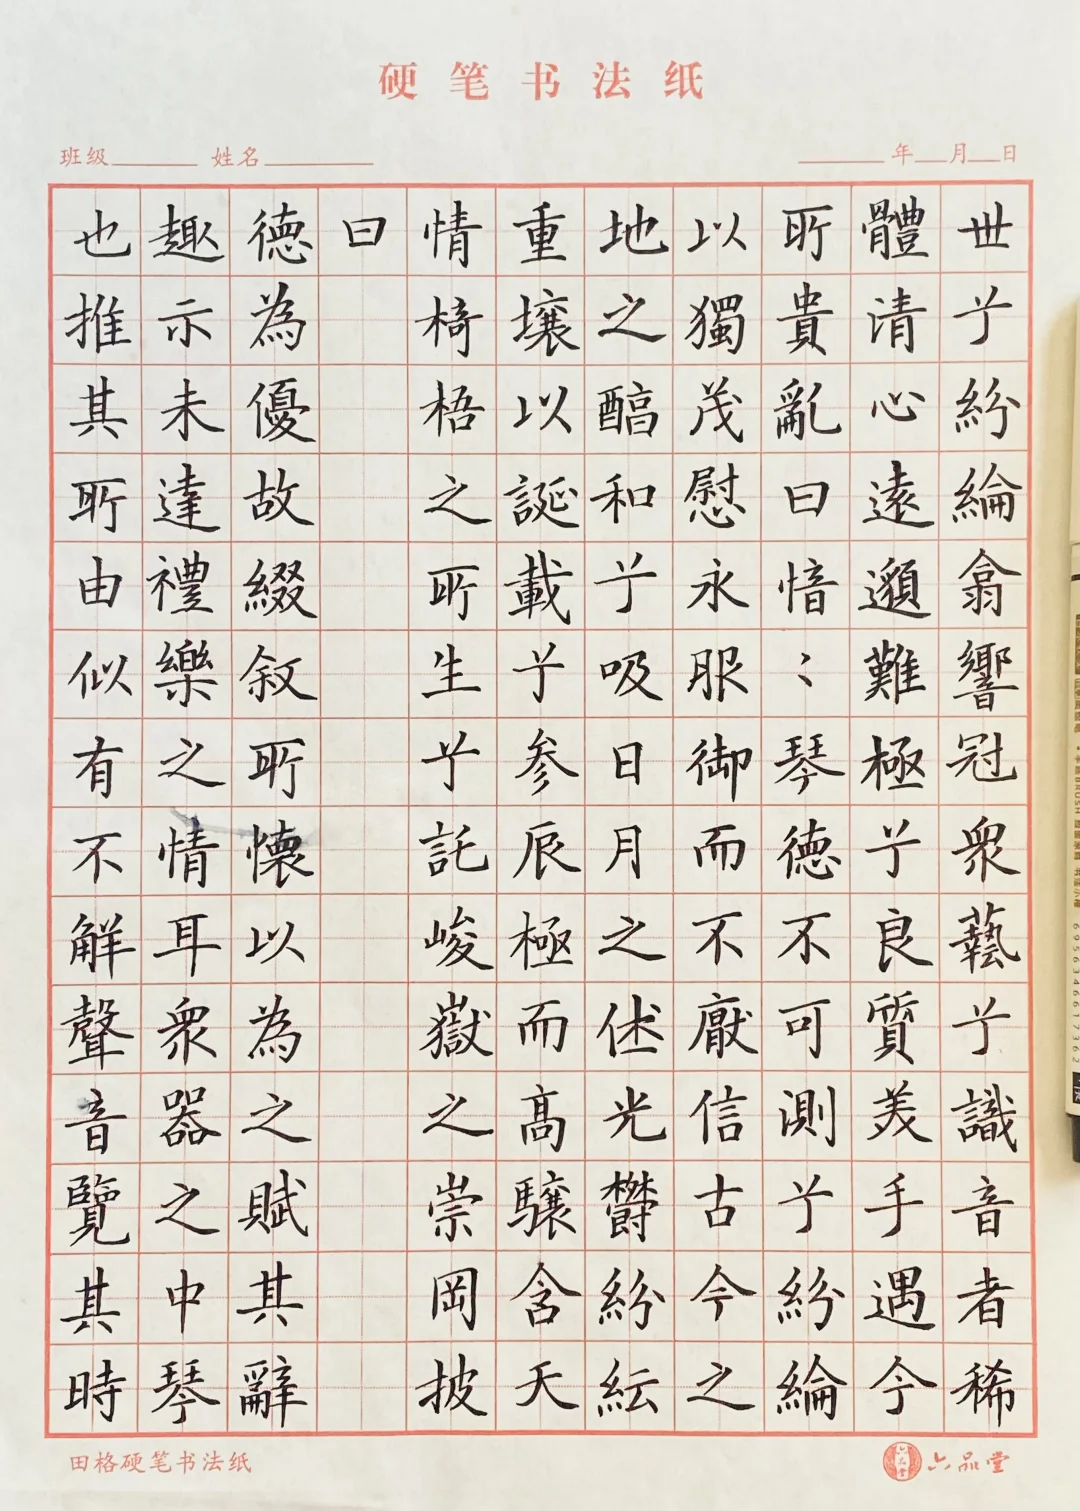 硬笔书法纸
班级 姓名 年 月 日
也推其所由似有不解聲音覽其時
趣示未達禮樂之情耳衆器之中琴
德為優故綴叙所懷以為之賦其辭
曰
情椅梧之所生兮託峻嶽之崇岡披
重壤以誕載兮参辰極而高驤含天
地之醕和兮吸日月之休光鬱紛紜
以獨茂慰永服御而不厭信古今之
所貴亂曰愔〻琴德不可測兮紛綸
體清心遠邈難極兮良質美手遇今
世兮紛綸翕響冠衆藝兮識音者稀
田格硬笔书法纸
六品堂